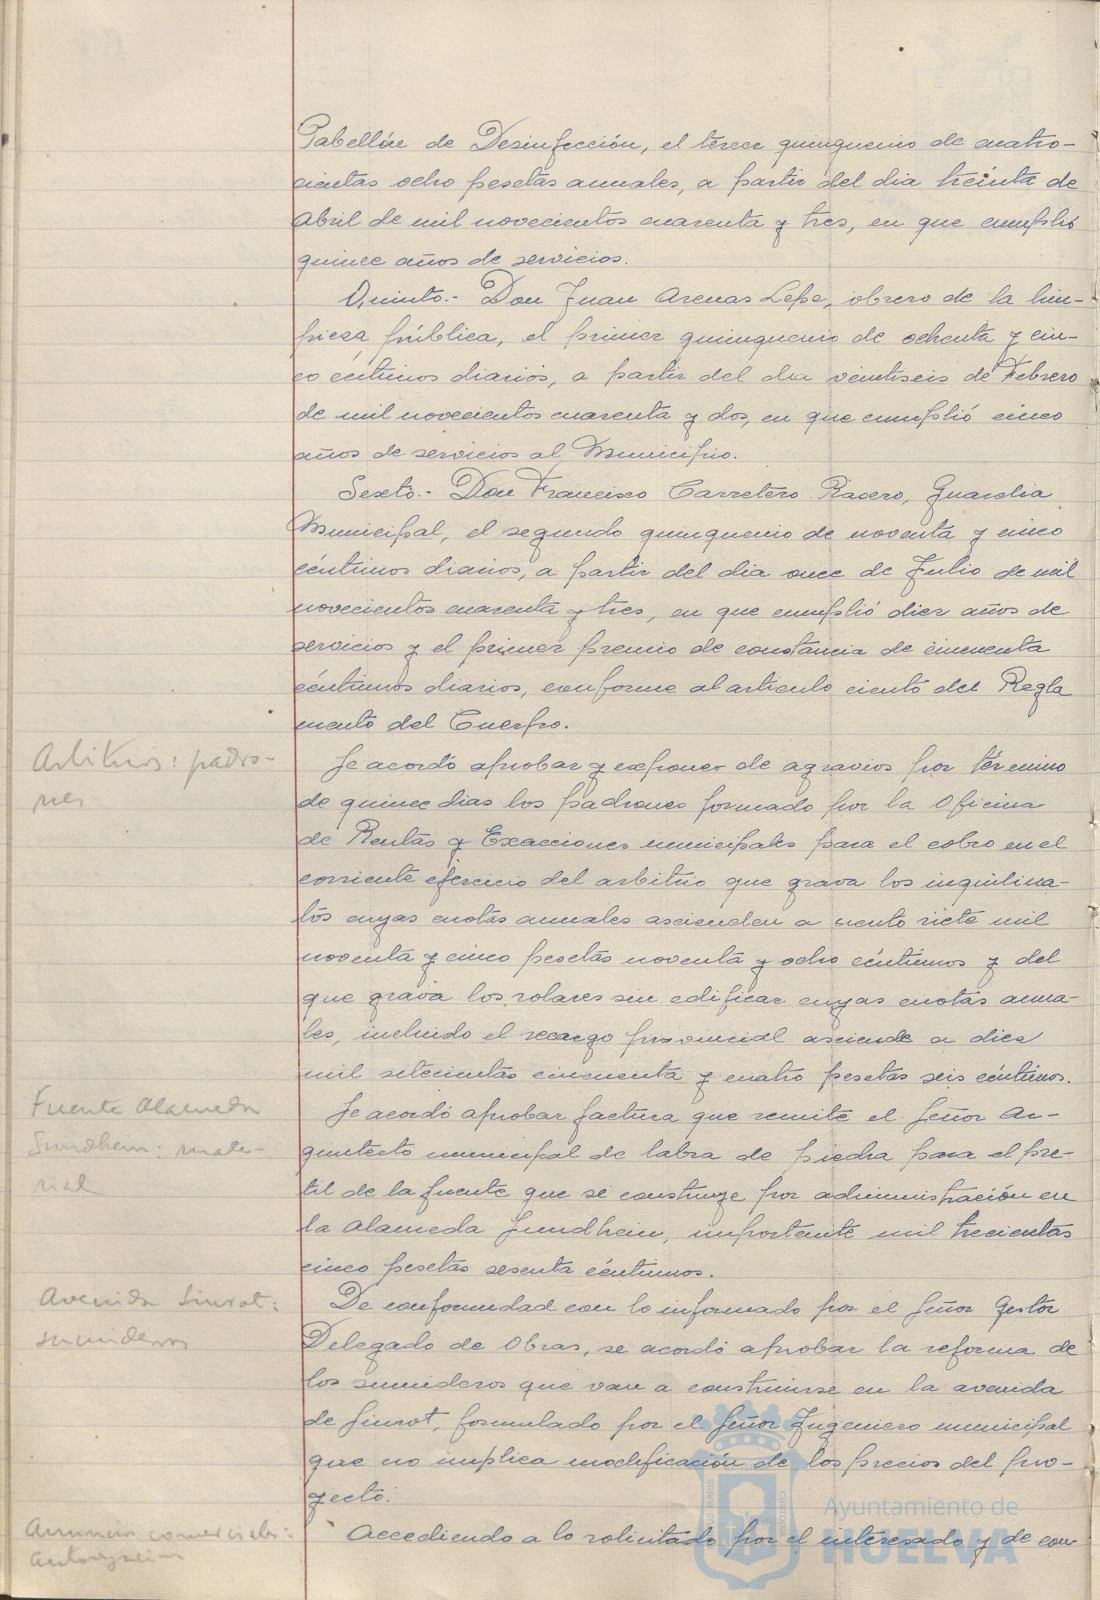 Pabellón de Desinfección, el tercer quinquenio de cuatro-
cientas ocho pesetas anuales, a partir del dia treinta de
Abril de mil novecientos cuarenta y tres, en que cumplió
quince años de servicios.
Quinto.- Don Juan Arenas Lepe, obrero de la lim-
pieza pública, el primer quinquenio de ochenta y cin-
co céntimos diarios, a partir del dia veintiseis de Febrero
de mil novecientos cuarenta y dos, en que cumplió cinco
años de servicios al Municipio.
Sexto.- Don Francisco Carretero Rasero, Guardia
Municipal, el segundo quinquenio de noventa y cinco
céntimos diarios, a partir del dia once de Julio de mil
novecientos cuarenta y tres, en que cumplió diez años de
servicios y el primer premio de constancia de cincuenta
céntimos diarios, conforme al articulo ciento del Regla
mento del Cuerpo.
Arbitrios: padro-
nes
Se acordó aprobar y exponer de agravios por término
de quince dias los padrones formado por la Oficina
de Rentas y Exacciones municipales para el cobro en el
corriente ejercicio del arbitrio que grava los inquilina-
tos cuyas cuotas anuales ascienden a ciento siete mil
noventa y cinco pesetas noventa y ocho céntimos y del
que grava los solares sin edificar cuyas cuotas anua-
les, incluido el recargo provincial asciende a diez
mil setecientas cincuenta y cuatro pesetas seis céntimos.
Fuente Alameda
Sundhein: mate-
rial
Se acordó aprobar factura que remite el Señor Ar-
quitecto municipal de labra de piedra para el pre-
til de la fuente que se construye por administración en
la Alameda Sundhein, importante mil trecientas
cinco pesetas sesenta céntimos.
Avenida Siurot:
sumideros
De conformidad con lo informado por el Señor Gestor
Delegado de Obras, se acordó aprobar la reforma de
los sumideros que van a construirse en la avenida
de Siurot, formulado por el Señor Ingeniero municipal
que no implica modificación de los precios del pro-
yecto.
Anuncios comerciales:
Autorización
Accediendo a lo solicitado por el interesado y de con-
Ayuntamiento de
HUELVA